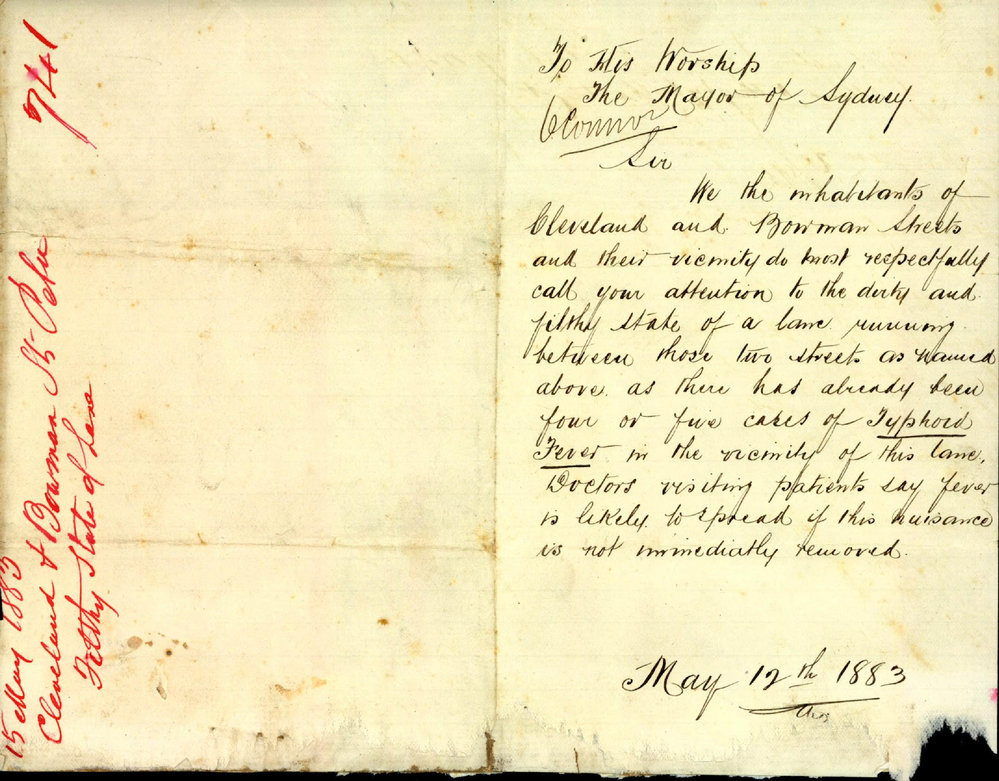 741
15 May 1883
Cleveland & Bowman Sts
Filthy State of Lane
To His Worship
The Mayor of Sydney.
OConnor
Sir
We the inhabitants of
Cleveland and Bowman Streets
and their vicinity do most respectfully
call your attention to the dirty and
filthy state of a lane running
between those two streets as named
above. as there has already been
four or five cases of Typhoid
Fever in the vicinity of this lane,
Doctors visiting patients say fever
is likely to spread if this nuisance
is not immediatly removed.
May 12th 1883